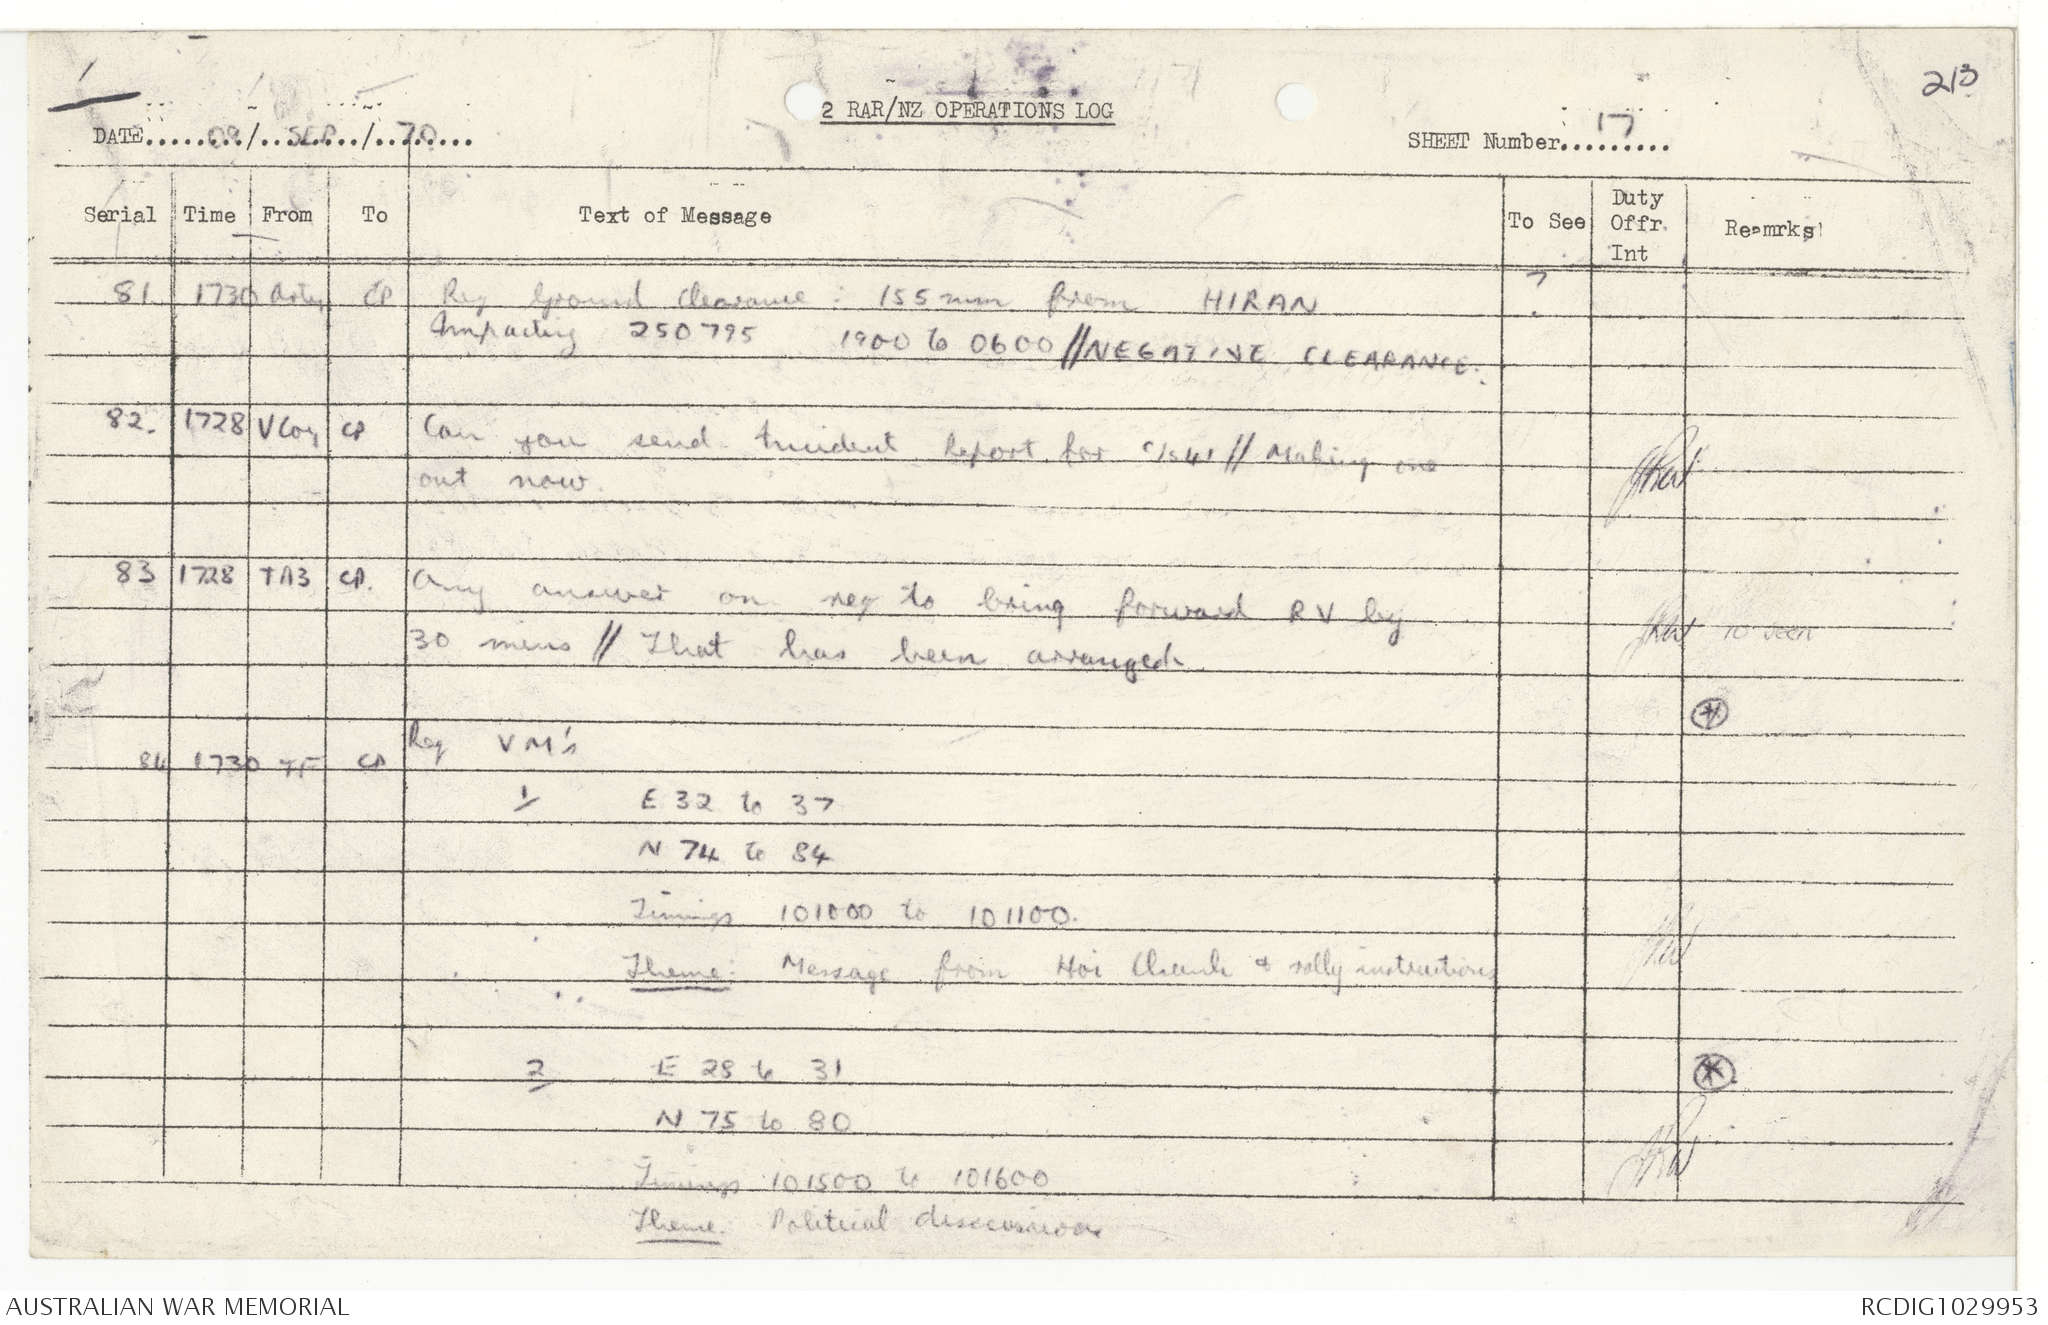 213
2 RAR/NZ OPERATIONS LOG
DATE......09/...SEP.../...70...
SHEET Number...17...
Serial Time From To Text of Message To See Duty Offr. Int Remrks
81 1730 Arty CP Req Ground Clearance: 155mm from HIRAN
Impacting 250795 1900 to 0600 // NEGATIVE CLEARANCE.
82. 1728 V Coy CP Can you send Incident Report for // Making one
out now.
83 1728 TA3 CP. Any answer on req to bring forward RV by
30 mins // That has been arranged.
IO seen
84 1730 TF CP Req VM's
1/ E 32 to 37
N 74 to 84
Timings 101000 to 101100.
Theme: Message from Hoi Chanh & rally instructions
2/ E 28 to 31
N 75 to 80
Timings 101500 to 101600
Theme: Political discussion
AUSTRALIAN WAR MEMORIAL
RCDIG1029953